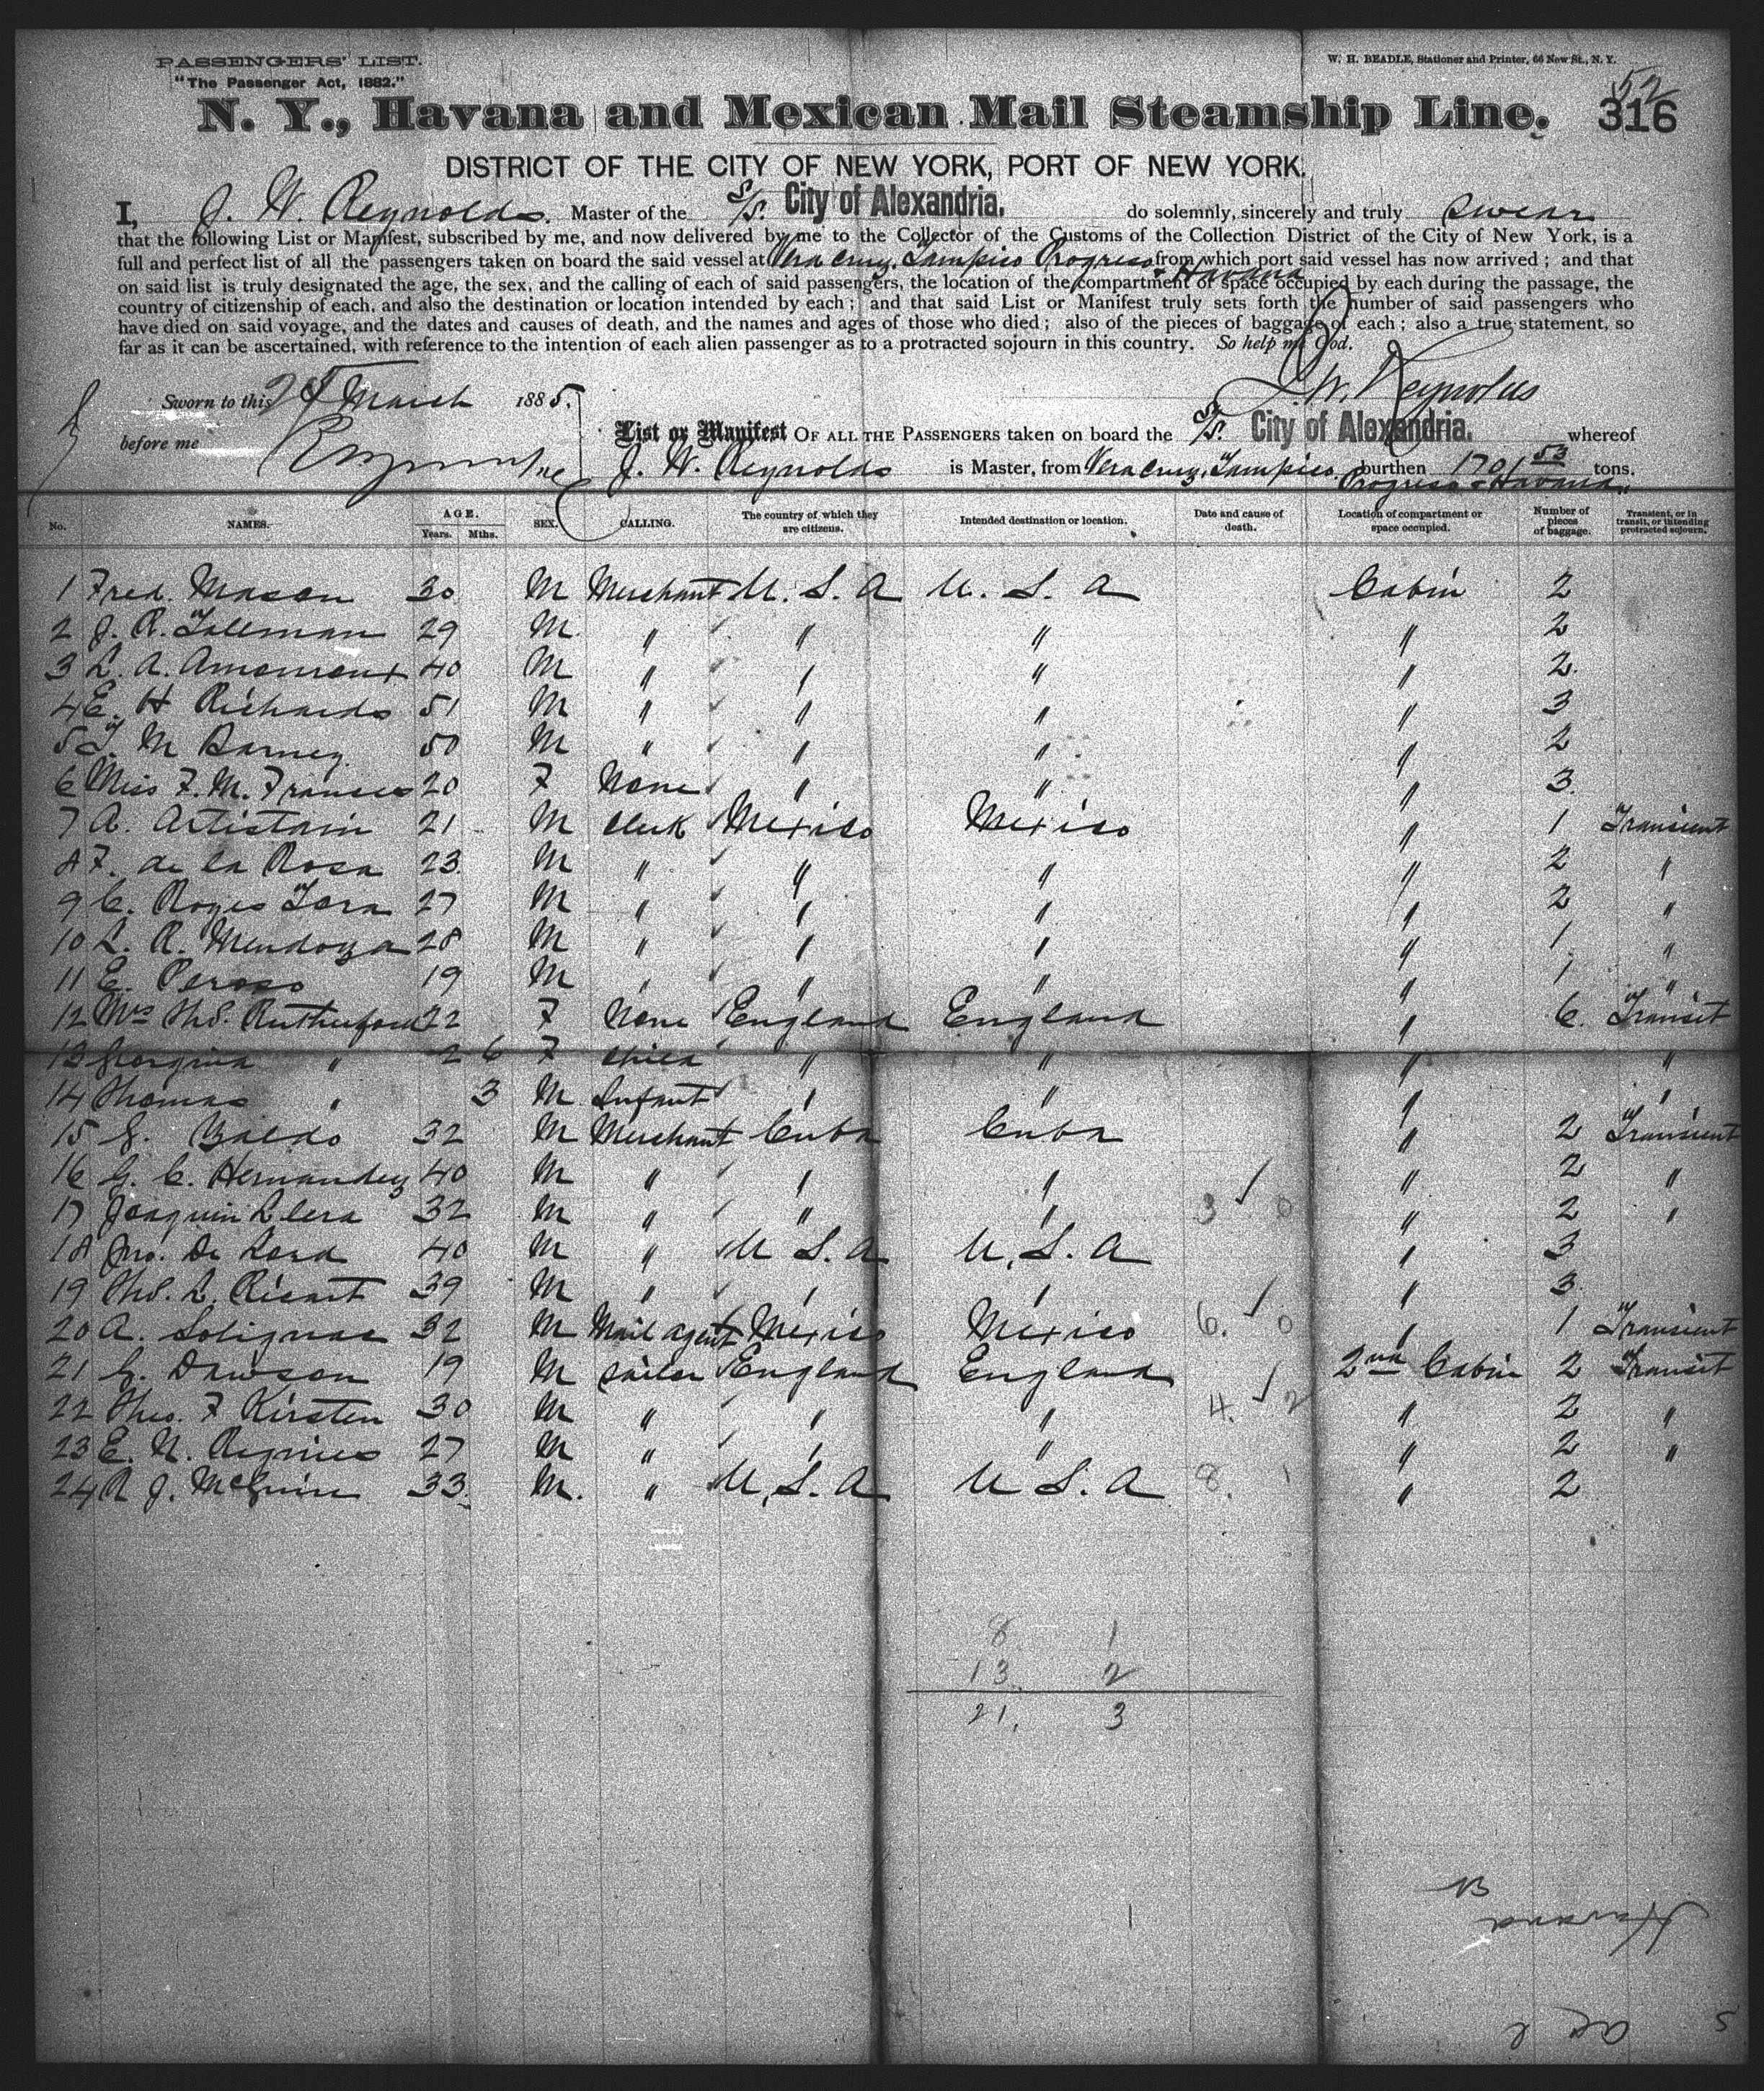 PASSENGERS' LIST.
"The Passenger Act, 1882."
W. H. BEADLE, Stationer and Printer, 66 New St., N. Y.
52
N. Y., Havana and Mexican Mail Steamship Line. 316
DISTRICT OF THE CITY OF NEW YORK, PORT OF NEW YORK.
I, J. W. Reynolds. Master of the S/S. City of Alexandria. do solemnly, sincerely and truly swear
that the following List or Manifest, subscribed by me, and now delivered by me to the Collector of the Customs of the Collection District of the City of New York, is a
full and perfect list of all the passengers taken on board the said vessel at Vera Cruz, Tampico Progreso & Havana from which port said vessel has now arrived; and that
on said list is truly designated the age, the sex, and the calling of each of said passengers, the location of the compartment or space occupied by each during the passage, the
country of citizenship of each, and also the destination or location intended by each; and that said List or Manifest truly sets forth the number of said passengers who
have died on said voyage, and the dates and causes of death, and the names and ages of those who died; also of the pieces of baggage of each; also a true statement, so
far as it can be ascertained, with reference to the intention of each alien passenger as to a protracted sojourn in this country. So help me God.
J. W. Reynolds
Sworn to this March 1885.
before me
List or Manifest OF ALL THE PASSENGERS taken on board the S/S. City of Alexandria. whereof
J. W. Reynolds is Master, from Vera Cruz, Tampico, Progreso & Havana burthen 1701 53 tons.
No. NAMES. AGE. Years. Mths. SEX. CALLING. The country of which they are citizens. Intended destination or location. Date and cause of death. Location of compartment or space occupied. Number of pieces of baggage. Transient, or in transit, or intending protracted sojourn.
1 Fred. Mason 30 M Merchant U. S. A U. S. A Cabin 2
2 J. R. Tallman 29 M. " " " " 2
3 L. A. 40 M " " " " 2.
4 E. H Richards 51 M " " " " 3
5 M Barney 50 M " " " " 2
6 Miss F. M. Frances 20 F None " " " 3.
7 A. Artistain 21 M Clerk Mexico Mexico " 1 Transient
8 F. de la Rosa 23. M " " " " 2 "
9 C. Roges Tara 27 M " " " " 2 "
10 L. R. Mendoza 28 M " " " " 1 "
11 E. Peroso 19 M " " " " 1 "
12 Mrs Thos. Rutherford 22 F None England England " 6. Transit
13 Georgina " 2 6 F Child " " " "
14 Thomas " 3 M Infant " " " "
15 Baldo 32 M Merchant Cuba Cuba " 2 Transient
16 G. C. Hernandez 40 M " " " " 2 "
17 Joaquin Llera 32 M " " " 3 0 " 2 "
18 Jno. De Lara 40 M " U S. A U. S. A " 3
19 Thos. L. 39 M " " " " 3.
20 A. Solignac 32 M Mail agent Mexico Mexico 6. 0 " 1 Transient
21 G. Dawson 19 M Sailor England England 2nd Cabin 2 Transit
22 Theo. F Kirsten 30 M " " " 4. 2 " 2 "
23 E. N. 27 M " " " " 2 "
24 R J. McGuire 33. M. " U. S. A U S. A 8. 1 " 2
8 1
13. 2
21. 3
Havana